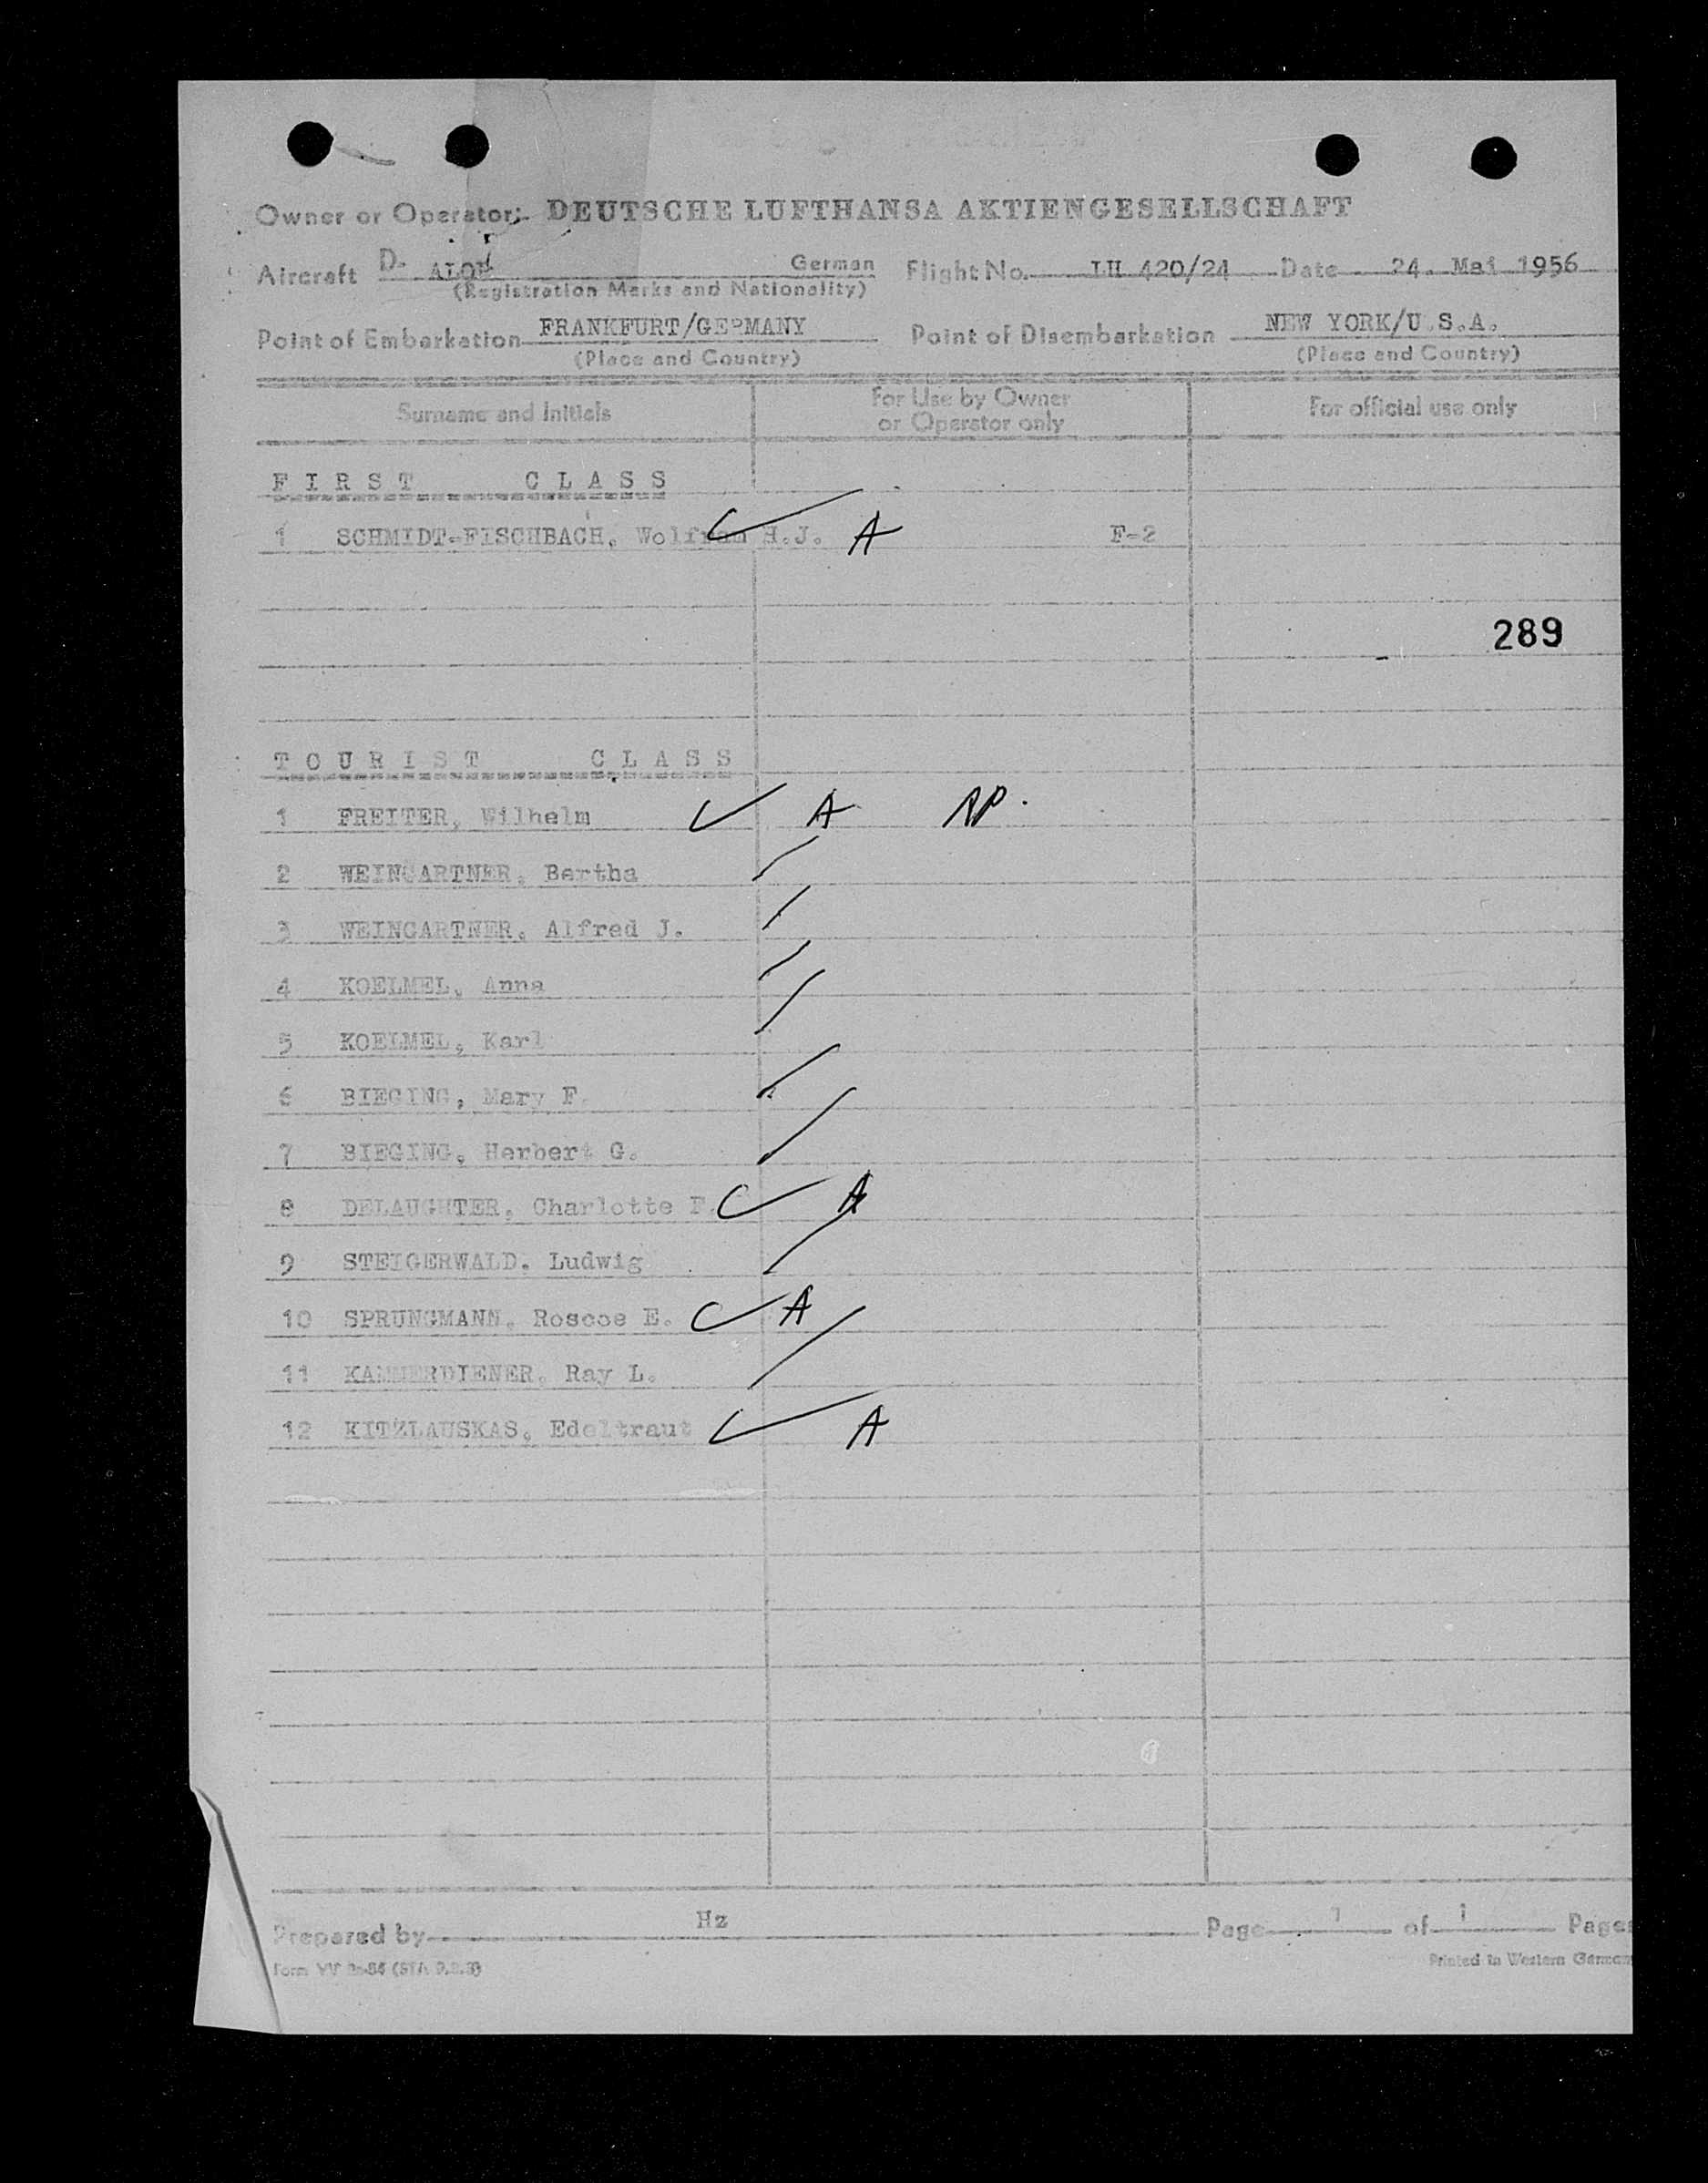 Owner or Operator: DEUTSCHE LUFTHANSA AKTIENGESELLSCHAFT
Aircraft D- German Flight No. LH 420/24 Date 24. Mai 1956
(Registration Marks and Nationality)
Point of Embarkation FRANKFURT/GERMANY Point of Disembarkation NEW YORK/U.S.A.
(Place and Country) (Place and Country)
Surname and Initials For Use by Owner or Operator only For official use only
FIRST CLASS
1 SCHMIDT-FISCHBACH, Wolfram H.J. A F-2
289
TOURIST CLASS
1 FREITER, Wilhelm A
2 WEINGARTNER, Bertha
3 WEINGARTNER, Alfred J.
4 KOELMEL, Anna
5 KOELMEL, Karl
6 BIEGING, Mary F.
7 BIEGING, Herbert G.
8 DELAUGHTER, Charlotte F. A
9 STEIGERWALD, Ludwig
10 SPRUNGMANN, Roscoe E. A
11 KAMMERDIENER, Ray L.
12 KITZLAUSKAS, Edeltraut A
Prepared by Hz Page 1 of 1 Pages
Form
Printed in Western German